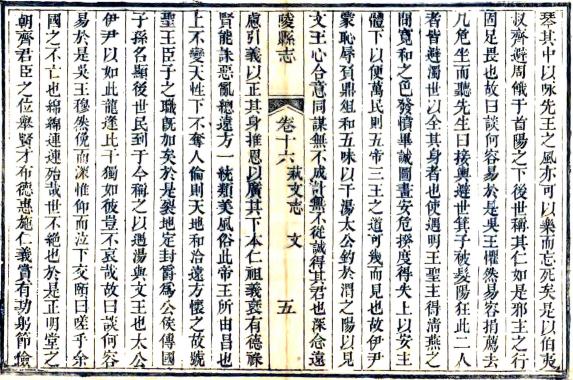 琴其中以咏先王之風亦可以樂而忘死矣是以伯夷
叔齊避周餓于首陽之下後世稱其仁如是邪主之行
固足畏也故曰談何容易於是吳王懼然易容捐薦去
几危坐而聽先生曰接輿避世箕子被髮陽狂此二人
者皆避濁世以全其身者也使遇明王聖主得清燕之
間寬和之色發憤畢誠圖畫安危揆度得失上以安主
體下以便萬民則五帝三王之道可幾而見也故伊尹
蒙恥辱負鼎俎和五味以干湯太公釣於渭之陽以見
文王心合意同謀無不成計無不從誠得其君也深念遠
陵縣志 卷十六 藝文志 文 五
慮引義以正其身推恩以廣其下本仁祖義褒有德祿
賢能誅惡亂總遠方一統類美風俗此帝王所由昌也
上不變天性下不奪人倫則天地和洽遠方懷之故號
聖王臣子之職既加矣於是裂地定封爵爲公侯傳國
子孫名顯後世民到于今稱之以遇湯與文王也太公
伊尹以如此龍逢比干獨如彼豈不哀哉故曰談何容
易於是吳王穆然俛而深惟仰而泣下交頤曰嗟乎余
國之不亡也綿綿連連殆哉世不絕也於是正明堂之
朝齊君臣之位舉賢才布德惠施仁義賞有功躬節儉